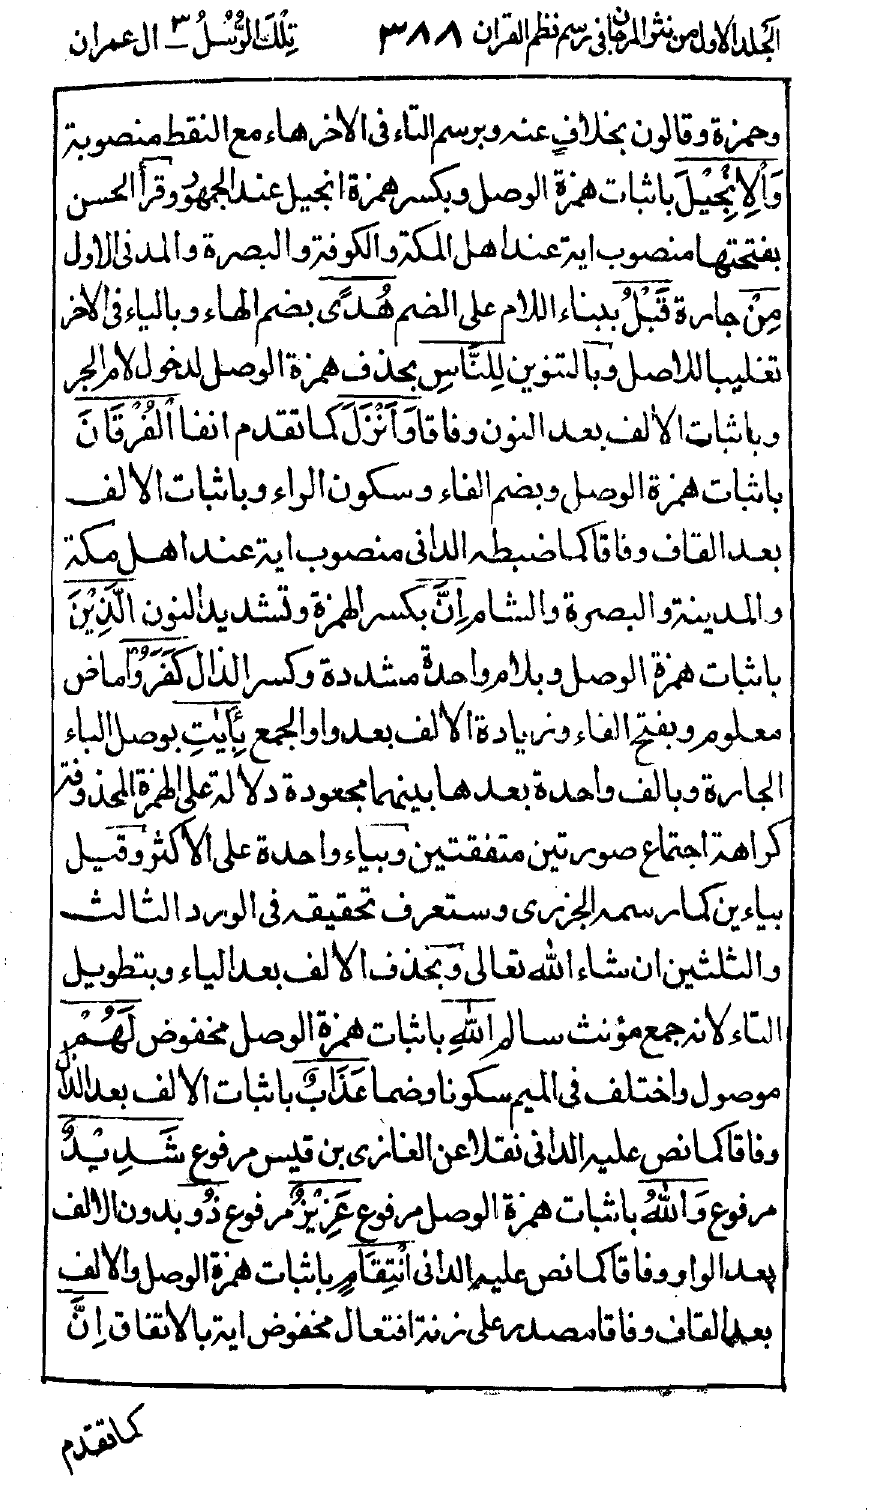 الجلد الاول من نثر المرجان في رسم نظم القران ٣٨٨ تِلْكَ الرُّسُلُ ٣ ال عمران
وحمزة وقالون بخلافٍ عنه وبرسم التاء فى الاخر هاء مع النقط منصوبة
وَالْاِنْجِيْلَ باثبات همزة الوصل وبكسر همزة انجيل عند الجمهور وقرأ الحسن
بفتحتها منصوب اية عند اهل المكة والكوفة والبصرة والمدنى الاول
مِنْ جارة قَبْلُ ببناء اللام على الضم هُدًى بضم الهاء وبالياء فى الاخر
تغليبا للاصل وبالتنوين لِلنَّاسِ بحذف همزة الوصل لدخول لام الجر
وباثبات الألف بعد النون وفاقا وَاَنْزَلَ كما تقدم انفا الْفُرْقَانَ
باثبات همزة الوصل وبضم الفاء وسكون الراء وباثبات الالف
بعد القاف وفاقا كما ضبطه الدانى منصوب اية عند اهل مكة
والمدينة والبصرة والشام اِنَّ بكسر الهمزة وتشديد النون الَّذِيْنَ
باثبات همزة الوصل وبلام واحدة مشددة وكسر الذال كَفَرُوْا ماض
معلوم وبفتح الفاء وزيادة الألف بعد واو الجمع بِاٰيٰتِ بوصل الباء
الجارة وبالف واحدة بعدها بينهما مجعودة دلالة على الهمزة المحذوفة
كراهة اجتماع صورتين متفقتين وبياء واحدة على الأكثر وقيل
بياءين كما رسمه الجزرى وستعرف تحقيقه فى الورد الثالث
والثلثين ان شاء الله تعالى وبحذف الالف بعد الياء وبتطويل
التاء لانه جمع مؤنث سالم اللهِ باثبات همزة الوصل مخفوض لَهُمْ
موصول واختلف فى الميم سكونا وضما عَذَابٌ باثبات الالف بعد الذال
وفاقا كما نص عليه الدانى نقلا عن الغازى بن قيس مرفوع شَدِيْدٌ
مرفوع وَاللهُ باثبات همزة الوصل مرفوع عَزِيْزٌ مرفوع ذُو بدون الالف
بعد الواو وفاقا كما نص عليه الدانى انْتِقَامٍ باثبات همزة الوصل والالف
بعد القاف وفاقا مصدر على زنة افتعال مخفوض اية بالاتفاق اِنَّ
كما تقدم